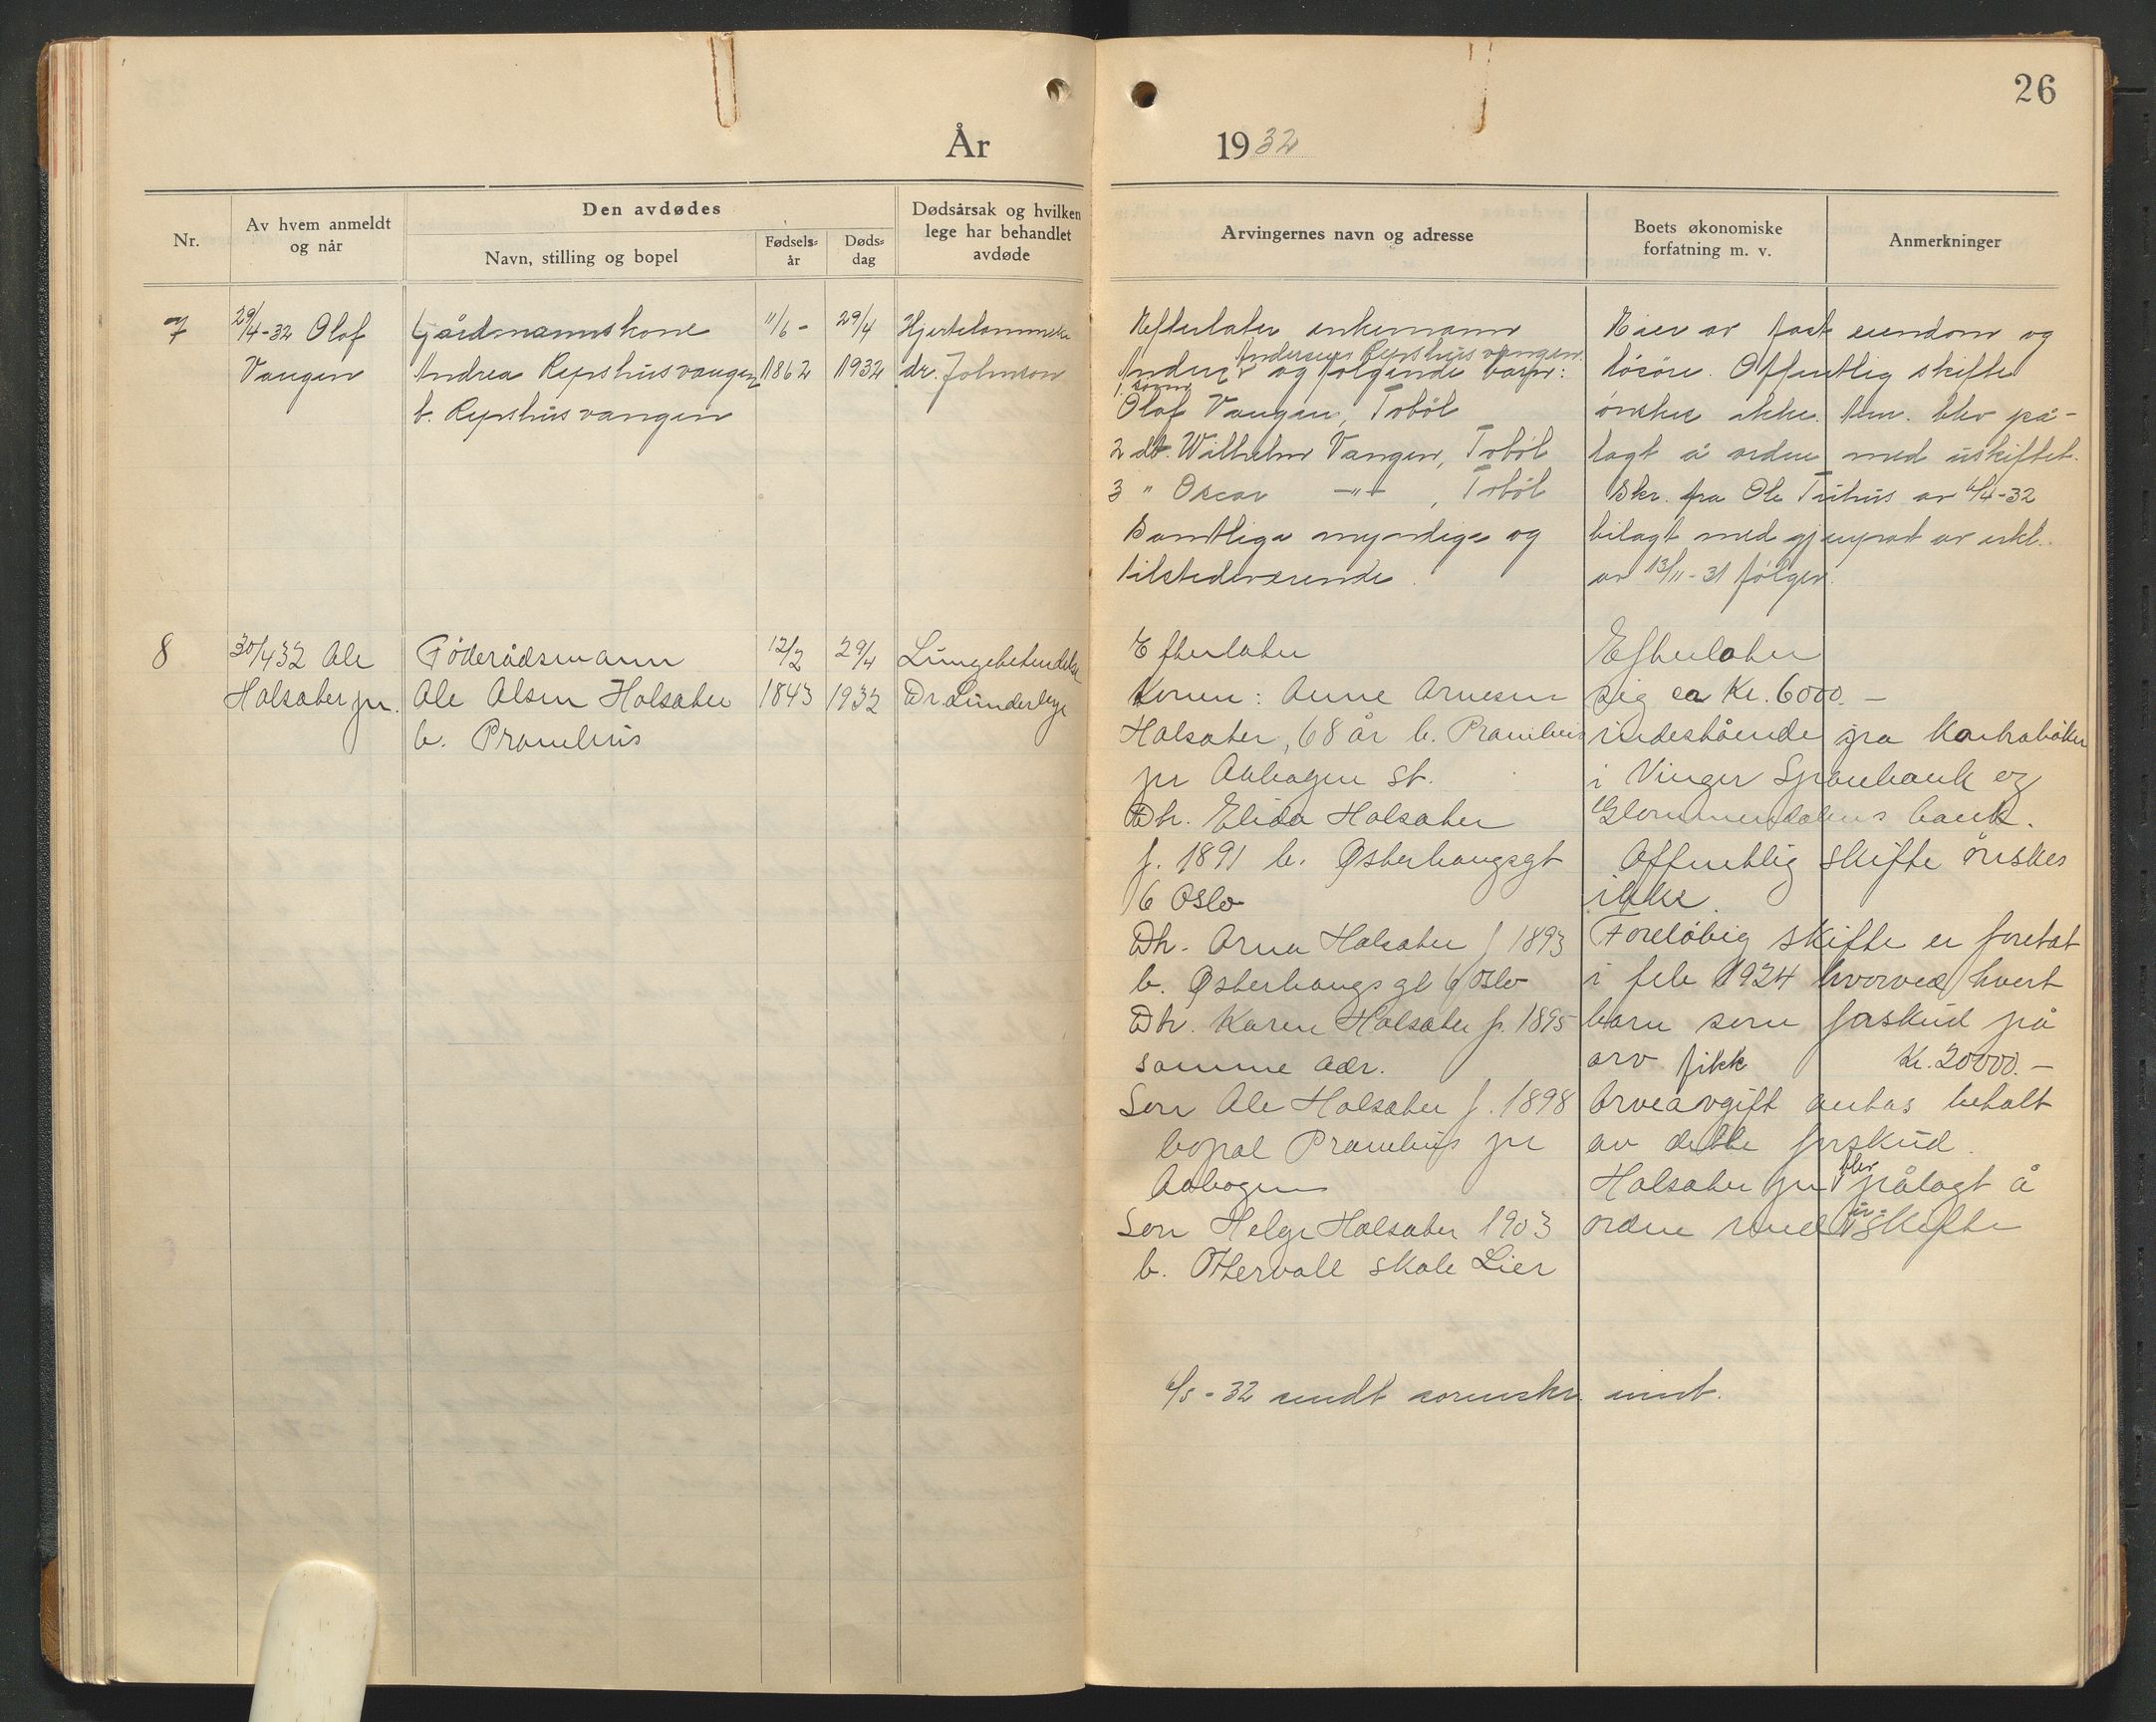 26
År 1932
Nr.
Av hvem anmeldt og når
Den avdødes
Navn, stilling og bopel
Fødsels= år
Døds= dag
Dødsårsak og hvilken lege har behandlet avdøde
Arvingernes navn og adresse
Boets økonomiske forfatning m. v.
Anmerkninger
7
29/4-32 Olof
Vangen
Gårdmannskone
Andrea Repshusvangen
b. Repshusvangen
11/6-
1862
29/4
1932
Hjertelammelse
dr. Johnson
Efterlater enkemann
Andersen Repshusvangen
Anders og følgende barn:
1. sønn
Olof Vangen, Tobøl
2 do. Wilhelm Vangen, Tobøl
3 " Oscar —"— , Tobøl
Samtlige myndige og
tilstedeværende.
Eier av fast eiendom og
løsøre. Offentlig skifte
ønskes ikke. Anm. blev på-
lagt å ordne med uskiftet.
Skr. fra Ole Trihus av 6/4-32
bilagt med gjenpart av erkl.
av 13/11-31 følger.
8
30/4 32 Ole
Holsæter jr.
Föderådsmann
Ole Olsen Holsæter
b. Pramhus
12/2
1843
29/4
1932
Lungebetendelse
Dr. Lunderbye
Efterlater
Konen: Anne Arnesen
Holsæter, 68 år b. Pramhus
pr Aabogen st.
Dtr. Elida Holsæter
f. 1891 b. Østerhaugsgt
6 Oslo
Dtr. Arna Holsæter f 1893
b. Østerhaugsgt 6 Oslo
Dtr. Karen Holsæter f. 1895
samme adr.
Sön Ole Holsæter f. 1898
bopæl Pramhus pr
Aabogen
Sön Helge Holsæter 1903
b. Ottervall skole Lier
Efterlater
sig ca Kr. 6000.—
indestående på kontrabøker
i Vinger Sparebank og
Glommendalens bank.
Offentlig skifte ønskes
ikke.
Foreløbig skifte er foretat
i feb 1924 hvorved hvert
barn som forskud på
arv fikk Kr. 20000.—
Arveavgift antas betalt
av dette forskud.
Holsæter jr blev pålagt å
ordne med skifte
6/5-32 sendt sorenskr. innb.